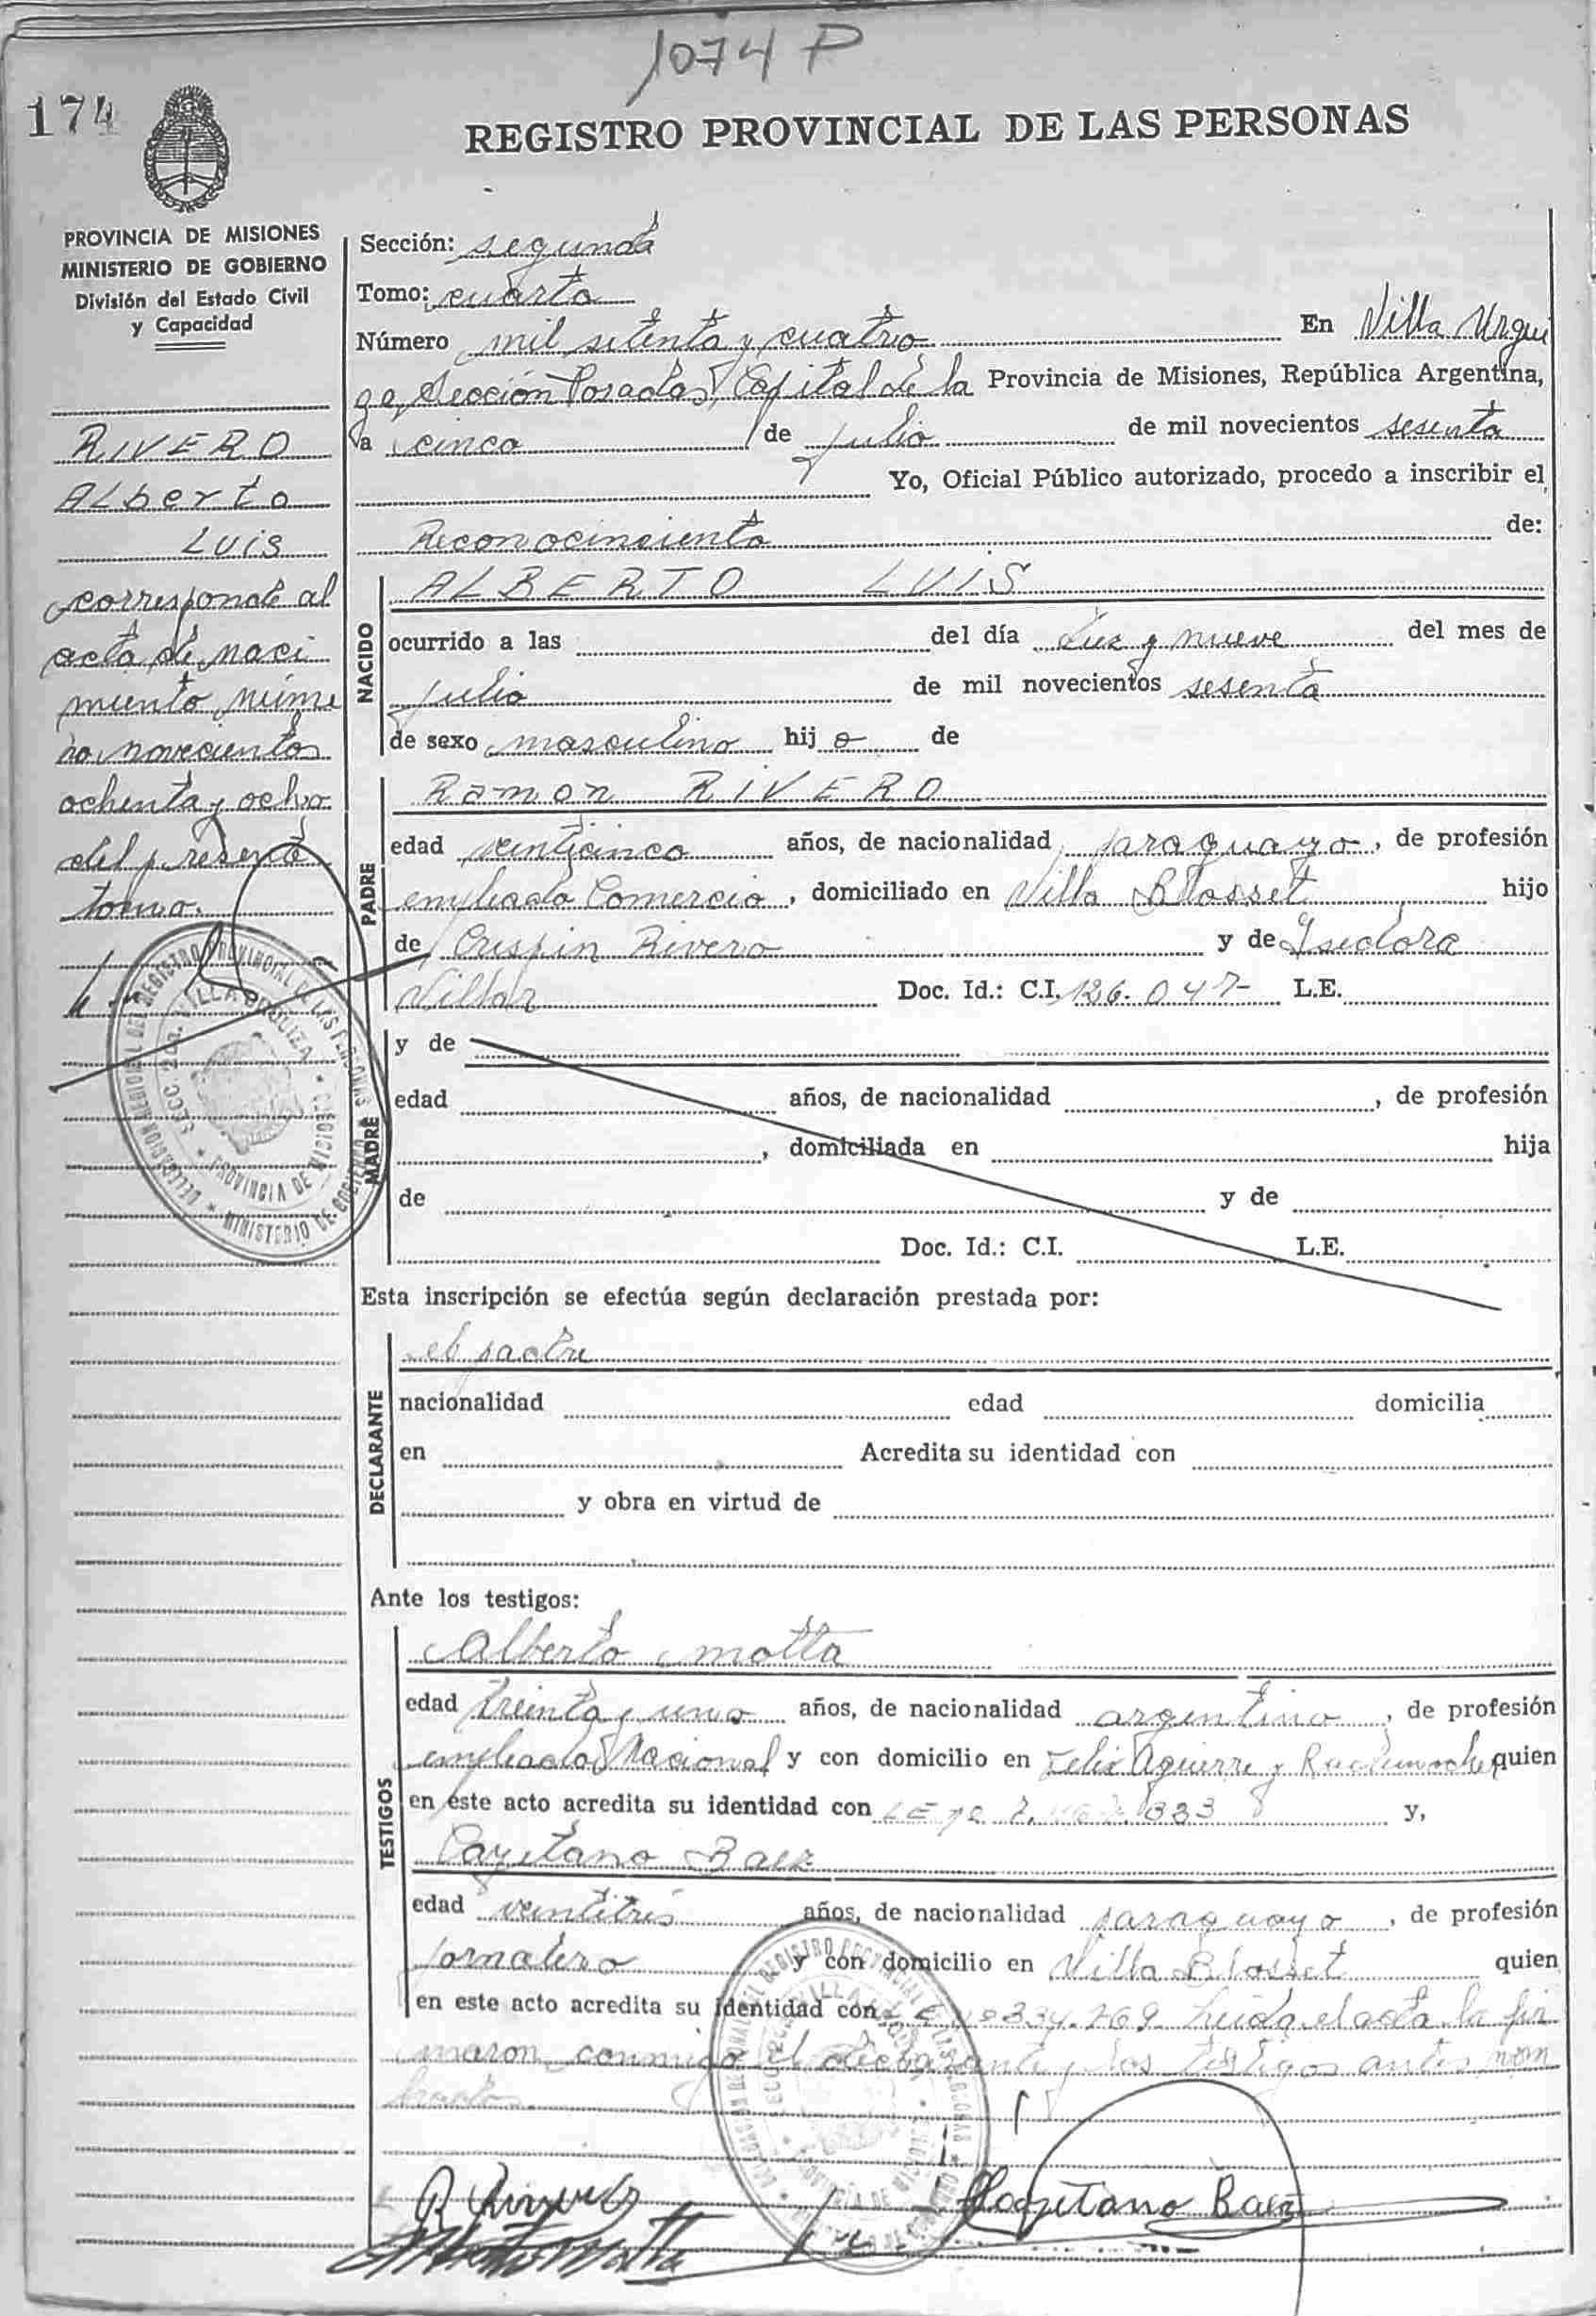 1074 P
174
REGISTRO PROVINCIAL DE LAS PERSONAS
PROVINCIA DE MISIONES
MINISTERIO DE GOBIERNO
División del Estado Civil
y Capacidad
RIVERO
Alberto
Luis
corresponde al
acta de naci
miento núme
ro novecientos
ochenta y ocho
del presente
tomo.
Sección: segunda
Tomo: cuarto
Número mil setenta y cuatro En Villa Urqui
za, Sección Posadas, Capital de la Provincia de Misiones, República Argentina,
a cinco de julio de mil novecientos sesenta
Yo, Oficial Público autorizado, procedo a inscribir el
Reconocimiento de:
NACIDO
ALBERTO LUIS
ocurrido a las del día diez y nueve del mes de
julio de mil novecientos sesenta
de sexo masculino hijo de
PADRE
Ramon RIVERO
edad veinticinco años, de nacionalidad paraguayo, de profesión
empleado Comercio, domiciliado en Villa Blosset hijo
de Crispin Rivero y de Isidora
Villar Doc. Id.: C.I. 126.047- L.E.
MADRE
y de
edad años, de nacionalidad , de profesión
, domiciliada en hija
de y de
Doc. Id.: C.I. L.E.
Esta inscripción se efectúa según declaración prestada por:
DECLARANTE
el padre
nacionalidad edad domicilia
en Acredita su identidad con
y obra en virtud de
Ante los testigos:
TESTIGOS
Alberto Motta
edad treinta y uno años, de nacionalidad argentino, de profesión
empleado Nacional y con domicilio en Felix Aguirre y quien
en este acto acredita su identidad con LE 333 y,
Cayetano Baez
edad veintitres años, de nacionalidad paraguayo, de profesión
jornalero y con domicilio en Villa Blosset quien
en este acto acredita su identidad con 334.269. Leida el acta la fir
maron conmigo el declarante y los testigos antes nom
brados.
DELEGACION REGIONAL DEL REGISTRO PROVINCIAL DE LAS PERSONAS
SECC. 2da. VILLA URQUIZA
PROVINCIA DE MISIONES
MINISTERIO DE GOBIERNO
Cayetano Baez
Alberto Motta